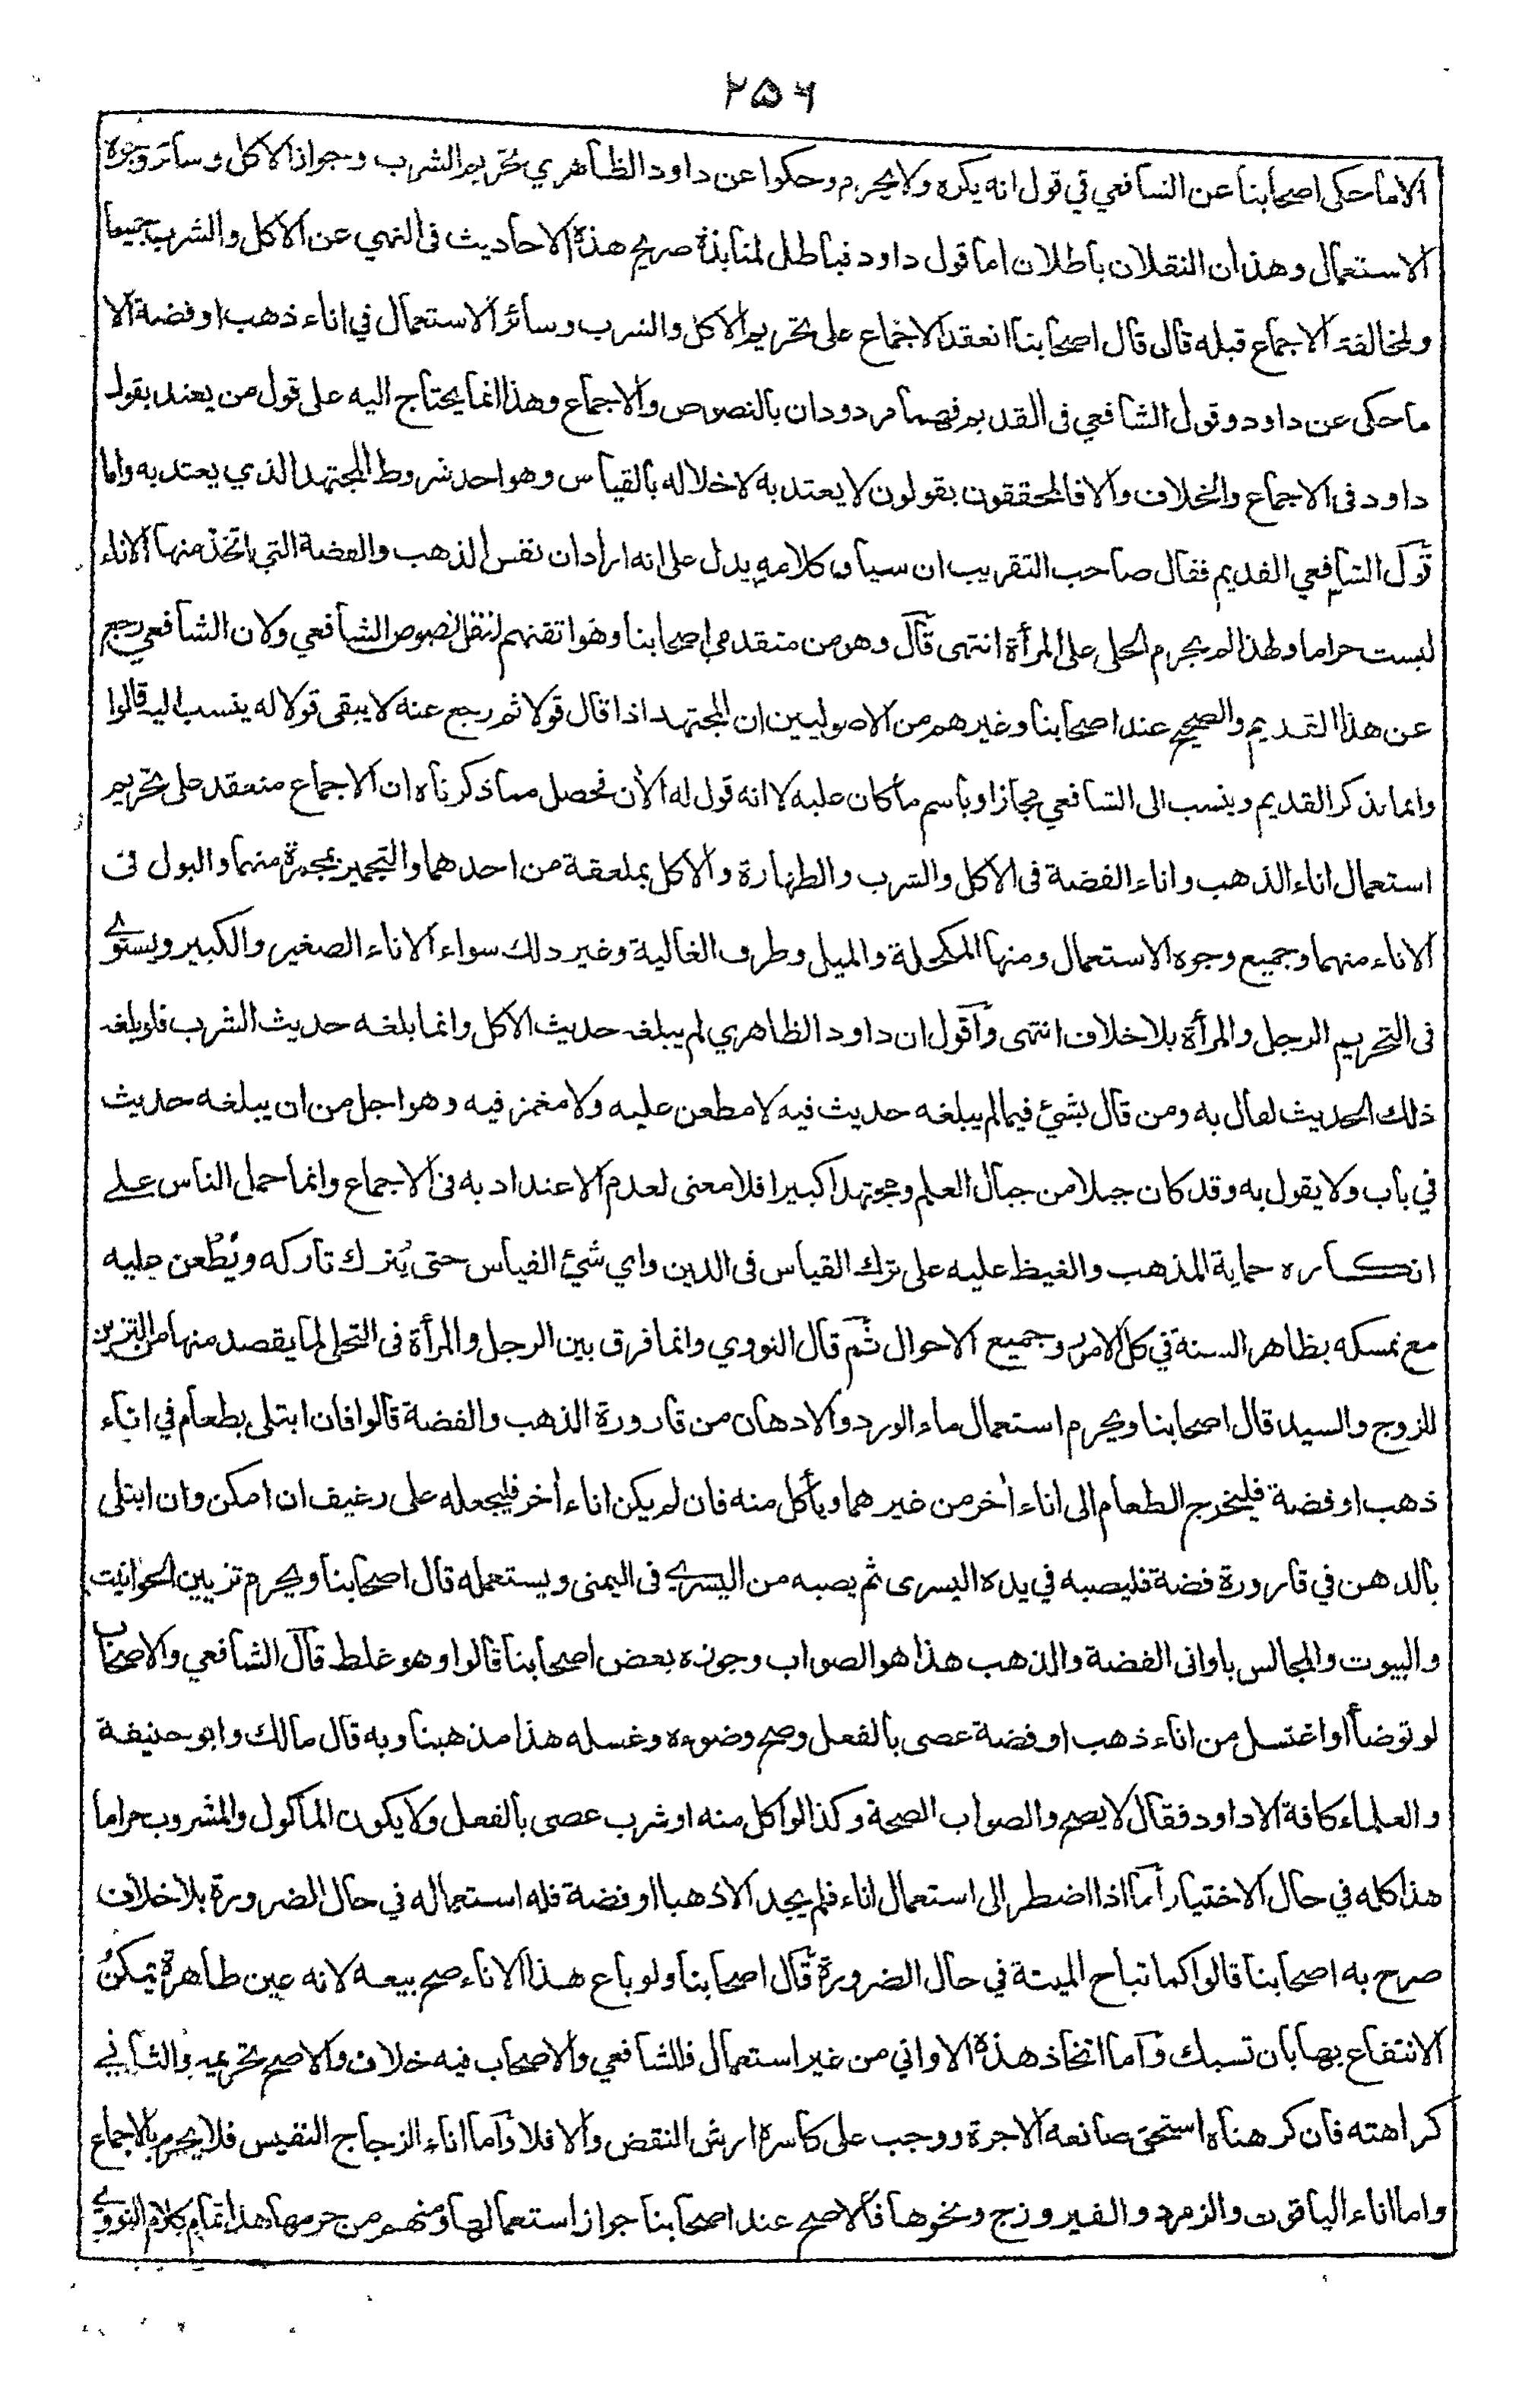 ۲۵۶
الا ما حكى اصحابنا عن الشافعي في قول انه يكره ولا يحرم وحكوا عن داود الظاهري تحريم الشرب وجواز الاكل وسائر وجوه
الاستعمال وهذان النقلان باطلان اما قول داود فباطل لمنابذة صريح هذه الاحاديث في النهي عن الاكل والشرب جميعا
ولمخالفة الاجماع قبله قال قال اصحابنا انعقد الاجماع على تحريم الاكل والشرب وسائر الاستعمال في اناء ذهب او فضة الا
ما حكى عن داود وقول الشافعي في القديم فهما مردودان بالنصوص والاجماع وهذا انما يحتاج اليه على قول من يعتد بقول
داود في الاجماع والخلاف والا فالمحققون يقولون لا يعتد به لاخلاله بالقياس وهو احد شروط المجتهد الذي يعتد به واما
قول الشافعي القديم فقال صاحب التقريب ان سياق كلامه يدل على انه اراد ان نفس الذهب والفضة التي اتخذ منها الاناء
ليست حراما ولهذا لم يحرم الحلى على المرأة انتهى قال وهو من متقدمي اصحابنا وهو اتقنهم لنقل نصوص الشافعي ولان الشافعي رجع
عن هذا القديم والصحيح عند اصحابنا وغيرهم من الاصوليين ان المجتهد اذا قال قولا ثم رجع عنه لا يبقى قولا له ينسب اليه قالوا
وانما يذكر القديم وينسب الى الشافعي مجازا وباسم ما كان عليه لا انه قول له الآن فحصل مما ذكرناه ان الاجماع منعقد على تحريم
استعمال اناء الذهب واناء الفضة في الاكل والشرب والطهارة والاكل بملعقة من احدهما والتجمير بمجمرة منهما والبول في
الاناء منهما وجميع وجوه الاستعمال ومنها المكحلة والميل وظرف الغالية وغير ذلك سواء الاناء الصغير والكبير ويستوي
في التحريم الرجل والمرأة بلا خلاف انتهى وأقول ان داود الظاهري لم يبلغه حديث الاكل وانما بلغه حديث الشرب فلو بلغه
ذلك الحديث لقال به ومن قال بشئ فيما لم يبلغه حديث فيه لا مطعن عليه ولا مغمز فيه وهو اجل من ان يبلغه حديث
في باب ولا يقول به وقد كان جبلا من جبال العلم ومجتهدا كبيرا فلا معنى لعدم الاعتداد به في الاجماع وانما حمل الناس على
انكاره حماية المذهب والغيظ عليه على ترك القياس في الدين واي شئ القياس حتى يُترك تاركه ويُطعن عليه
مع تمسكه بظاهر السنة في كل الامور وجميع الاحوال ثم قال النووي وانما فرق بين الرجل والمرأة في التحلى لما يقصد منها من التزين
للزوج والسيد قال اصحابنا ويحرم استعمال ماء الورد والادهان من قارورة الذهب والفضة قالوا فان ابتلى بطعام في اناء
ذهب او فضة فليخرج الطعام الى اناء أخر من غيرهما ويأكل منه فان لم يكن اناء أخر فليجعله على رغيف ان امكن وان ابتلى
بالدهن في قارورة فضة فليصبه في يده اليسرى ثم يصبه من اليسرى في اليمنى ويستعمله قال اصحابنا ويحرم تزيين الحوانيت
والبيوت والمجالس باواني الفضة والذهب هذا هو الصواب وجوزه بعض اصحابنا قالوا وهو غلط قال الشافعي والاصحاب
لو توضأ او اغتسل من اناء ذهب او فضة عصى بالفعل وصح وضوءه وغسله هذا مذهبنا وبه قال مالك وابو حنيفة
والعلماء كافة الا داود فقال لا يصح والصواب الصحة وكذا لو اكل منه او شرب عصى بالفعل ولا يكون المأكول والمشروب حراما
هذا كله في حال الاختيار أما اذا اضطر الى استعمال اناء فلم يجد الا ذهبا او فضة فله استعماله في حال الضرورة بلا خلاف
صرح به اصحابنا قالوا كما تباح الميتة في حال الضرورة قال اصحابنا ولو باع هذا الاناء صح بيعه لانه عين طاهرة يمكن
الانتفاع بها بان تسبك وأما اتخاذ هذه الاواني من غير استعمال فللشافعي والاصحاب فيه خلاف والاصح تحريمه والثاني
كراهته فان كرهناه استحق صانعه الاجرة ووجب على كاسره ارش النقض والا فلا وأما اناء الزجاج النفيس فلا يحرم بالاجماع
واما اناء الياقوت والزمرد والفيروزج ونحوها فالاصح عند اصحابنا جواز استعمالها ومنهم من حرمها هذا تمام كلام النووي